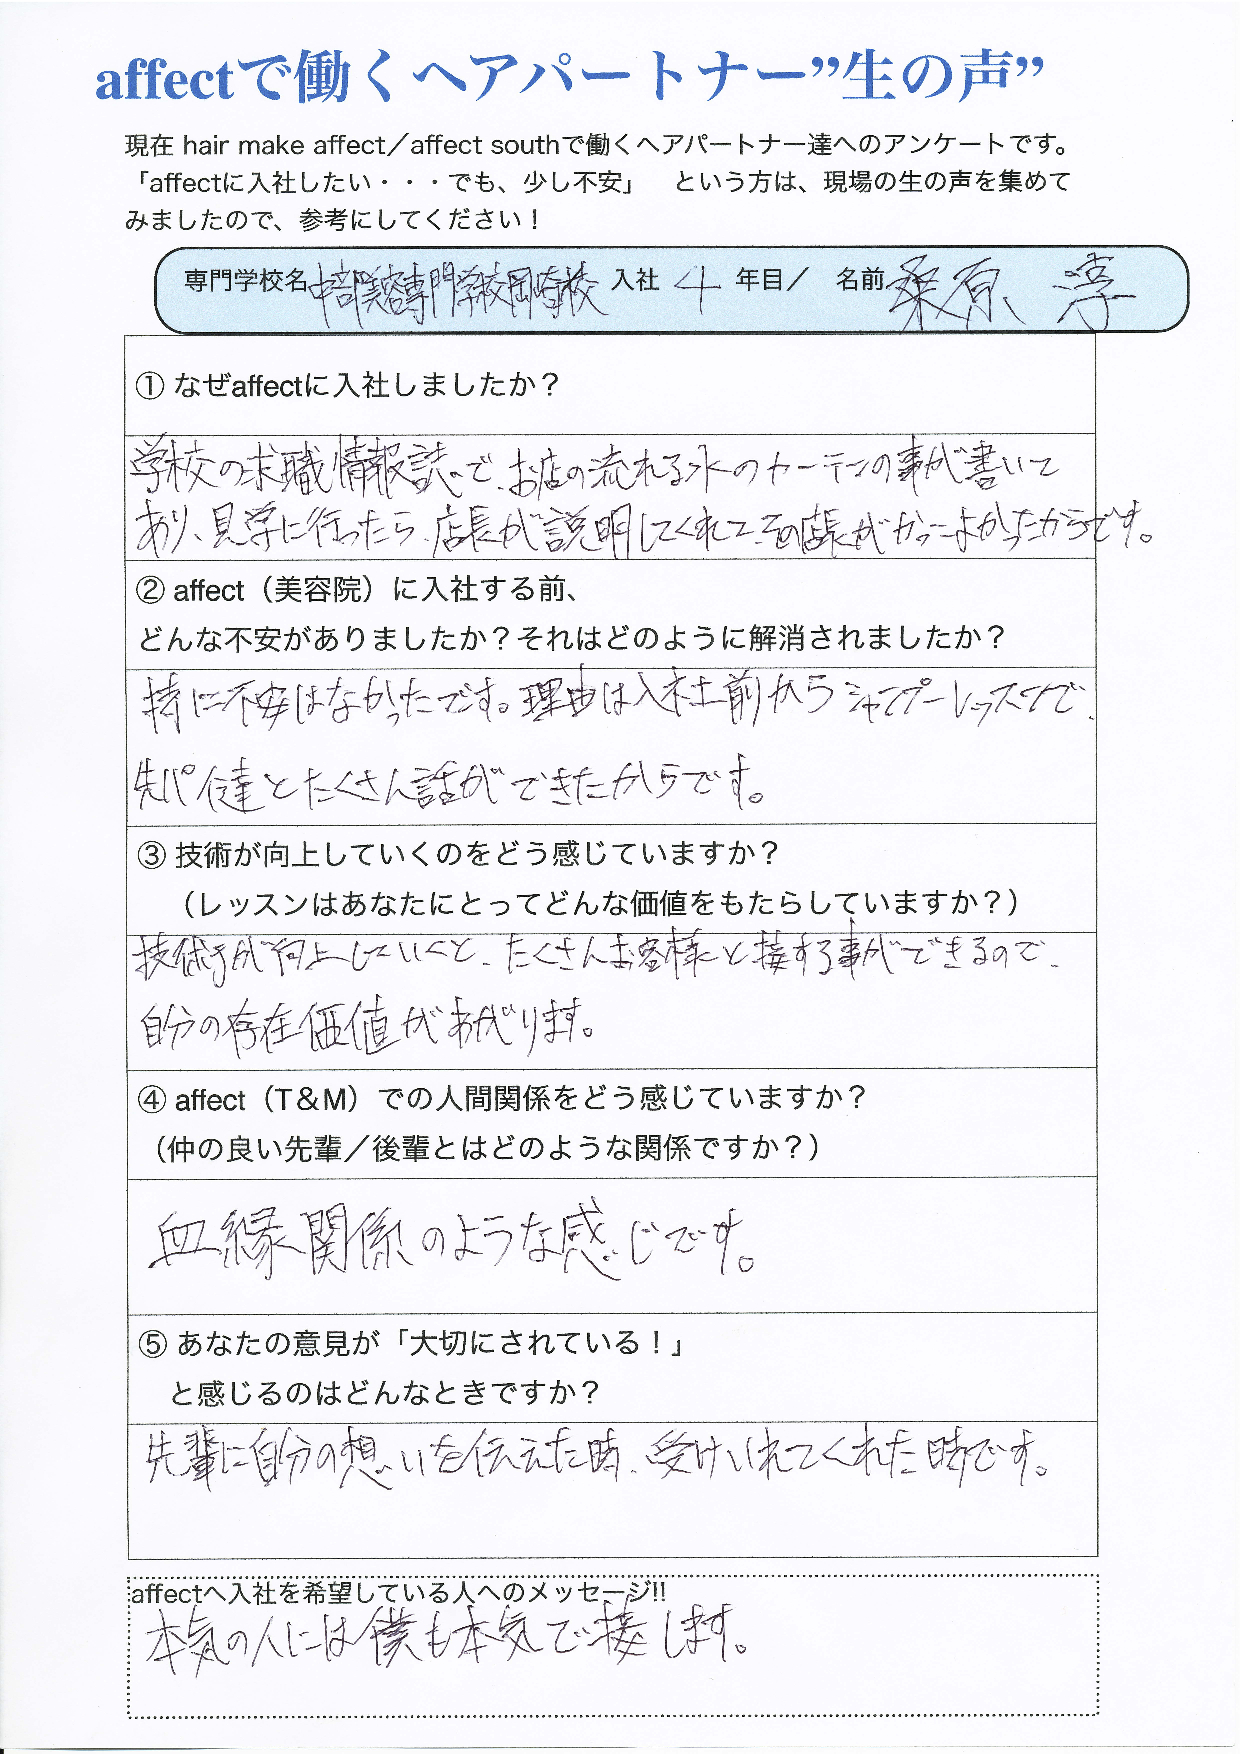 affectで働くヘアパートナー”生の声”
現在 hair make affect／affect southで働くヘアパートナー達へのアンケートです。
「affectに入社したい・・・でも、少し不安」　という方は、現場の生の声を集めて
みましたので、参考にしてください！
専門学校名 中部美容専門学校岡崎校 入社 4 年目／ 名前 桑原 淳
① なぜaffectに入社しましたか？
学校の求職情報誌で、お店の流れる水のカーテンの事が書いて
あり、見学に行ったら、店長が説明してくれて、その店長がかっこよかったからです。
② affect（美容院）に入社する前、
どんな不安がありましたか？それはどのように解消されましたか？
特に不安はなかったです。理由は入社前からシャンプーレッスンで、
先パイ達とたくさん話ができたからです。
③ 技術が向上していくのをどう感じていますか？
（レッスンはあなたにとってどんな価値をもたらしていますか？）
技術が向上していくと、たくさんお客様と接する事ができるので、
自分の存在価値があがります。
④ affect（T＆M）での人間関係をどう感じていますか？
（仲の良い先輩／後輩とはどのような関係ですか？）
血縁関係のような感じです。
⑤ あなたの意見が「大切にされている！」
と感じるのはどんなときですか？
先輩に自分の想いを伝えた時、受けいれてくれた時です。
affectへ入社を希望している人へのメッセージ!!
本気の人には僕も本気で接します。